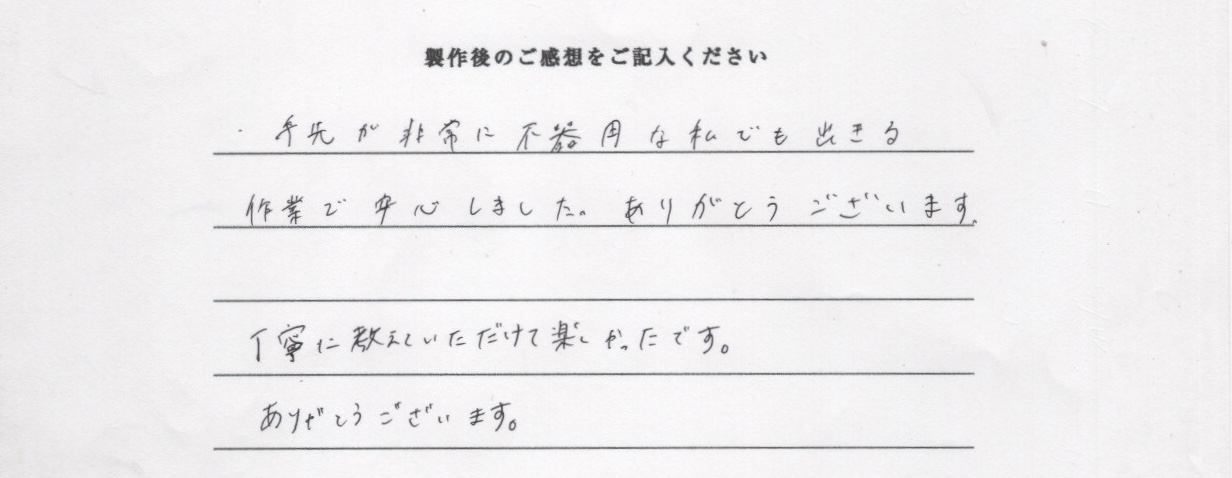 製作後のご感想をご記入ください
・手先が非常に不器用な私でも出きる
作業で安心しました。ありがとうございます。
丁寧に教えていただけて楽しかったです。
ありがとうございます。